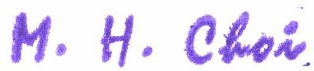 M. H. Choi